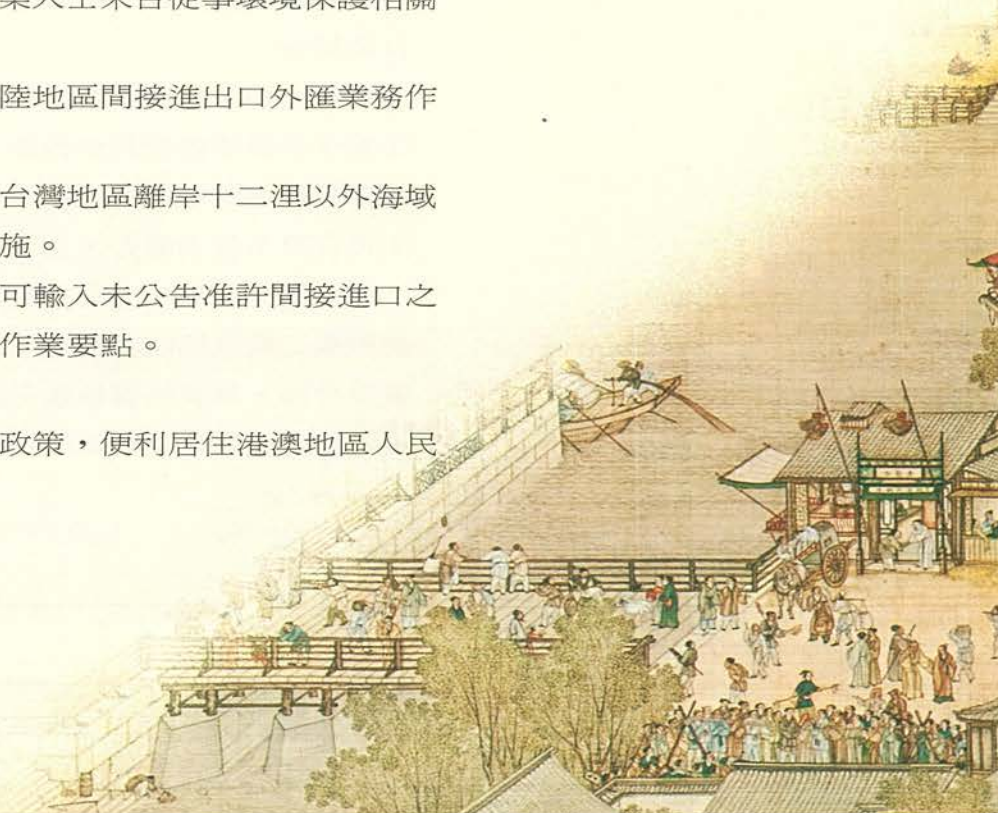 業人士來台從事環境保護相關
陸地區間接進出口外匯業務作
台灣地區離岸十二浬以外海域
施。
可輸入未公告准許間接進口之
作業要點。
政策，便利居住港澳地區人民